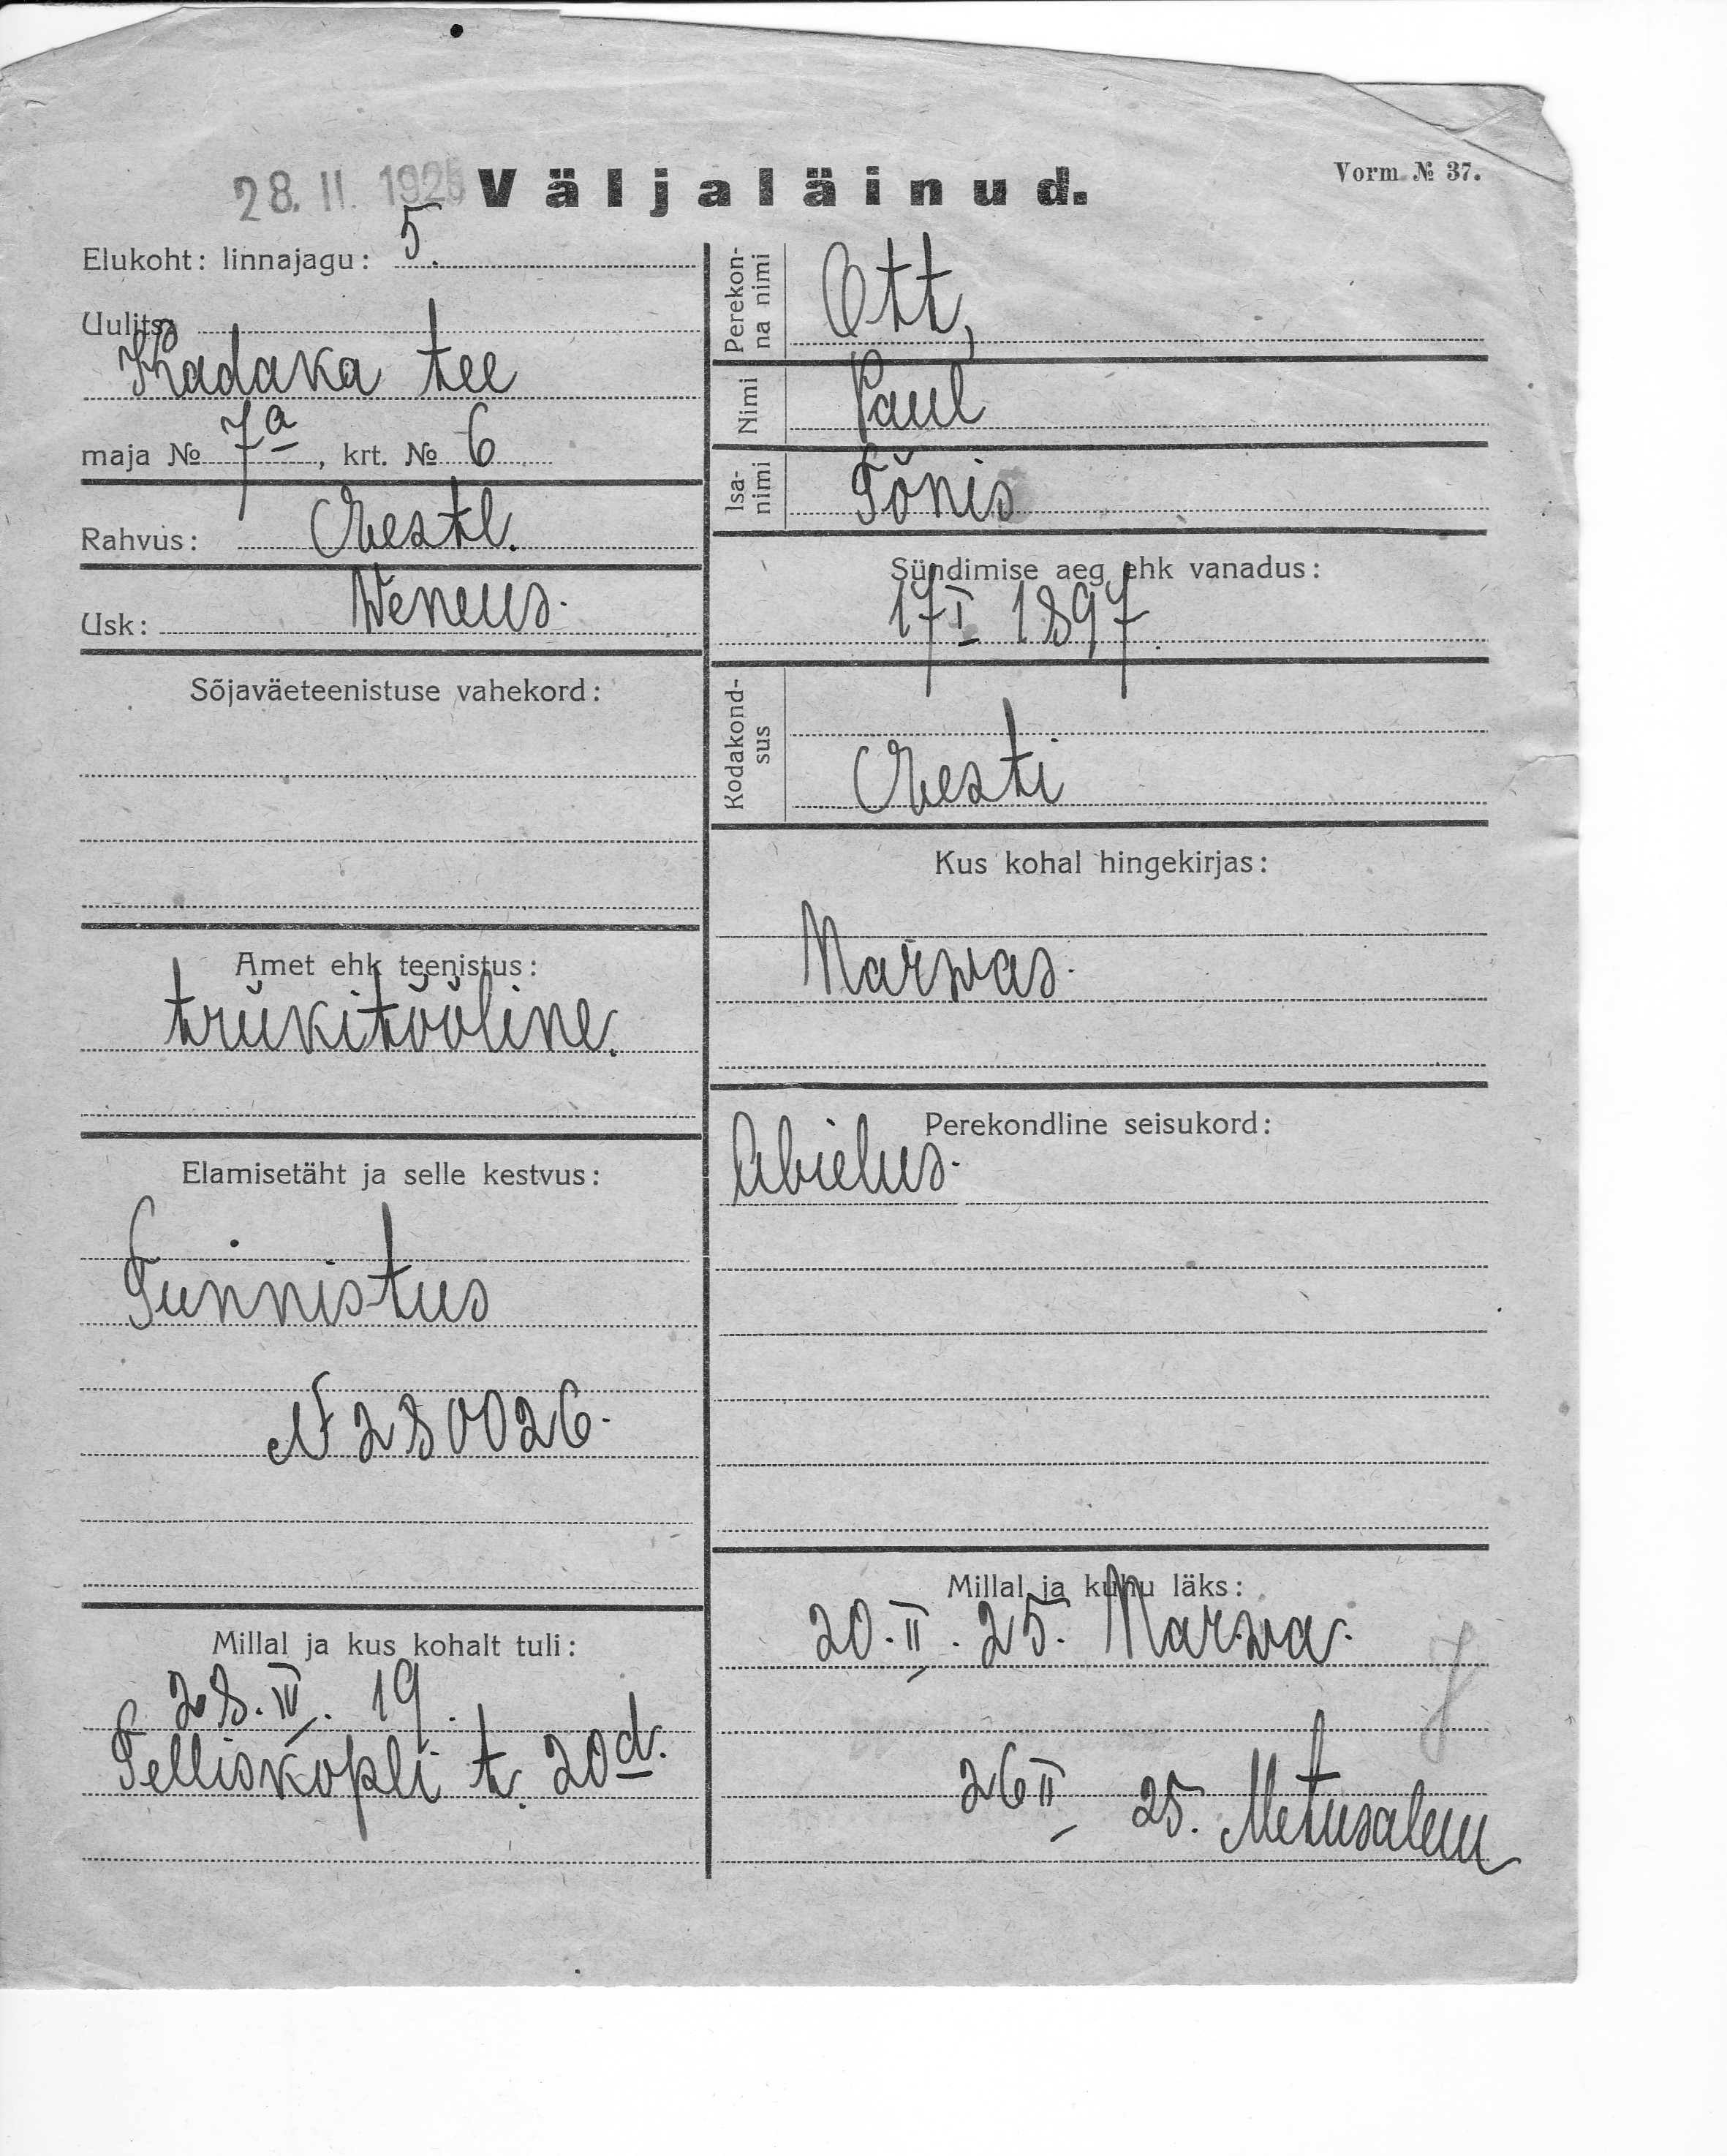 Vorm № 37.
28. II. 1925 Väljaläinud.
Elukoht: linnajagu: 5.
Uulitsa
Kadaka tee
maja № 7a, krt. № 6
Rahvus: Eestl.
Usk: Weneus.
Sõjaväeteenistuse vahekord:
Amet ehk teenistus:
trükitööline.
Elamisetäht ja selle kestvus:
Tunnistus
N 28 0026.
Millal ja kus kohalt tuli:
28. III. 19.
Telliskopli t. 20d.
Perekon-
na nimi
Ott,
Nimi Paul
Isa-
nimi
Tõnis
Sündimise aeg ehk vanadus:
17 I 1897.
Kodakond-
sus
Eesti
Kus kohal hingekirjas:
Narwas.
Perekondline seisukord:
Abielus.
Millal ja kuhu läks:
20. II. 25. Narwa.
26 II 25. Metusalem